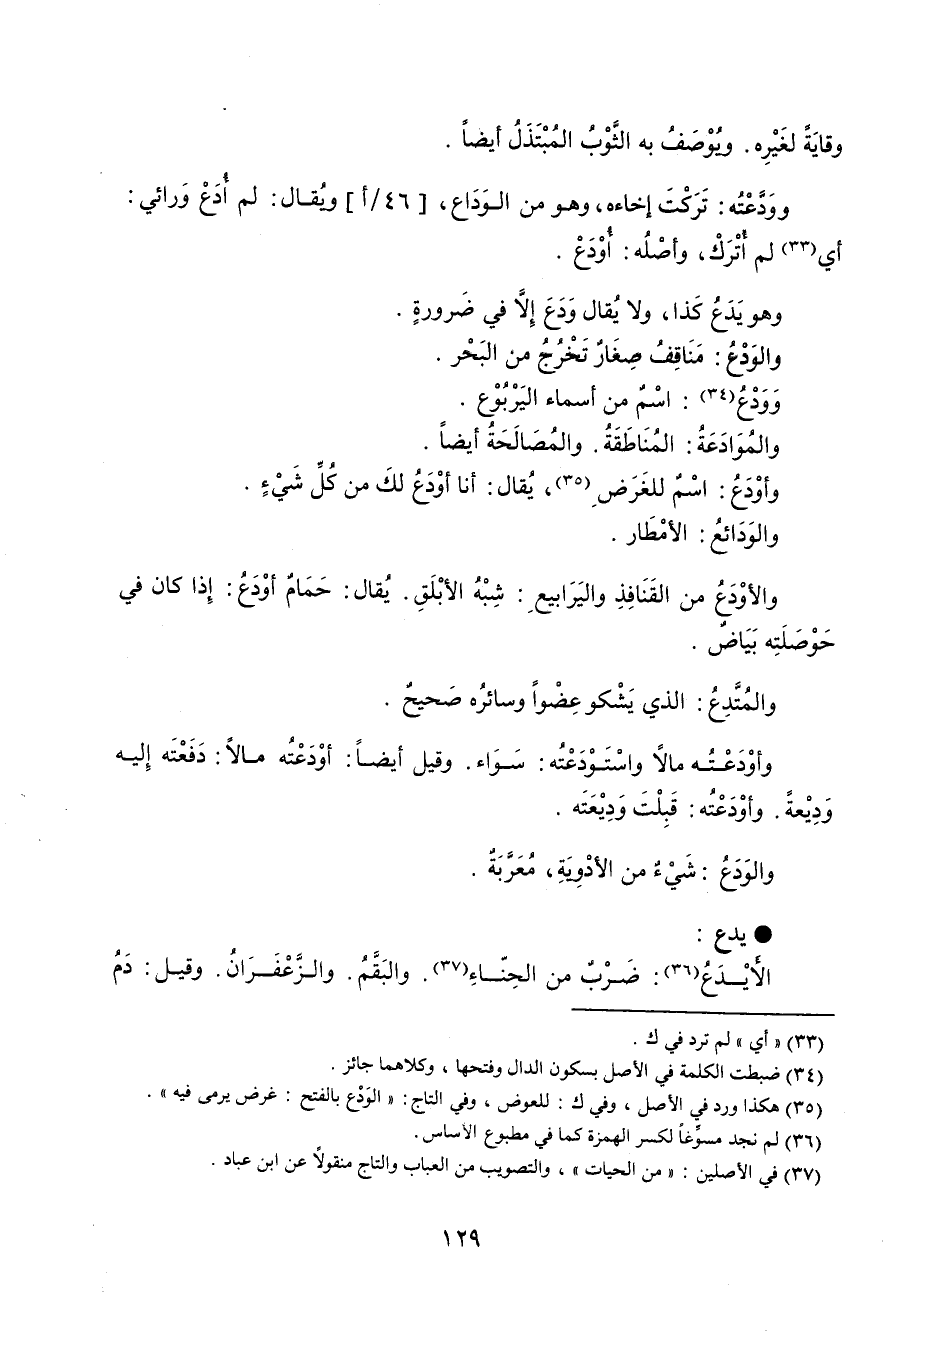 وقايَةً لغَيْرِه. ويُوْصَفُ به الثَّوْبُ المُبْتَذَلُ أيضاً .
ووَدَّعْتُه: تَرَكْتَ إخاءه، وهو من الوَدَاع، [ ٤٦/أ ] ويُقال: لم أُدَعْ وَرائي:
أي(٣٣) لم أُتْرَكْ، وأصْلُه: أُوْدَعْ .
وهو يَدَعُ كَذا، ولا يُقال وَدَعَ إلَّا في ضَرورةٍ .
والوَدْعُ: مَنَاقِفُ صِغَارٌ تَخْرُجُ من البَحْر .
وَوَدْعُ(٣٤) : اسْمٌ من أسماء اليَرْبُوْع .
والمُوَادَعَةُ: المُنَاطَقَةُ. والمُصَالَحَةُ أيضاً .
وأوْدَعُ: اسْمٌ للغَرَضِ(٣٥)، يُقال: أنا أوْدَعُ لكَ من كُلِّ شَيْءٍ .
والوَدَائعُ: الأمْطَار .
والأوْدَعُ من القَنَافِذِ واليَرَابيعِ : شِبْهُ الأبْلَقِ. يُقال: حَمَامٌ أوْدَعُ: إذا كان في
حَوْصَلَتِه بَيَاضٌ .
والمُتَّدِعُ: الذي يَشْكو عِضْواً وسائرُه صَحيحٌ .
وأوْدَعْتُه مالًا واسْتَوْدَعْتُه: سَوَاء. وقيل أيضاً: أوْدَعْتُه مالاً: دَفَعْتَه إليه
وَدِيْعةً. وأوْدَعْتُه: قَبِلْتَ وَدِيْعَتَه .
والوَدَعُ : شَيْءٌ من الأدْوِيَةِ، مُعَرَّبَةٌ .
● يدع :
الأَيْدَعُ(٣٦): ضَرْبٌ من الحِنّاءِ(٣٧). والبَقَّمُ. والزَّعْفَرَانُ. وقيل: دَمُ
(٣٣) « أي » لم ترد في ك .
(٣٤) ضبطت الكلمة في الأصل بسكون الدال وفتحها ، وكلاهما جائز .
(٣٥) هكذا ورد في الأصل ، وفي ك : للعوض ، وفي التاج : « الوَدْع بالفتح : غرض يرمى فيه » .
(٣٦) لم نجد مسوِّغاً لكسر الهمزة كما في مطبوع الأساس.
(٣٧) في الأصلين : « من الحيات » ، والتصويب من العباب والتاج منقولاً عن ابن عباد .
١٢٩